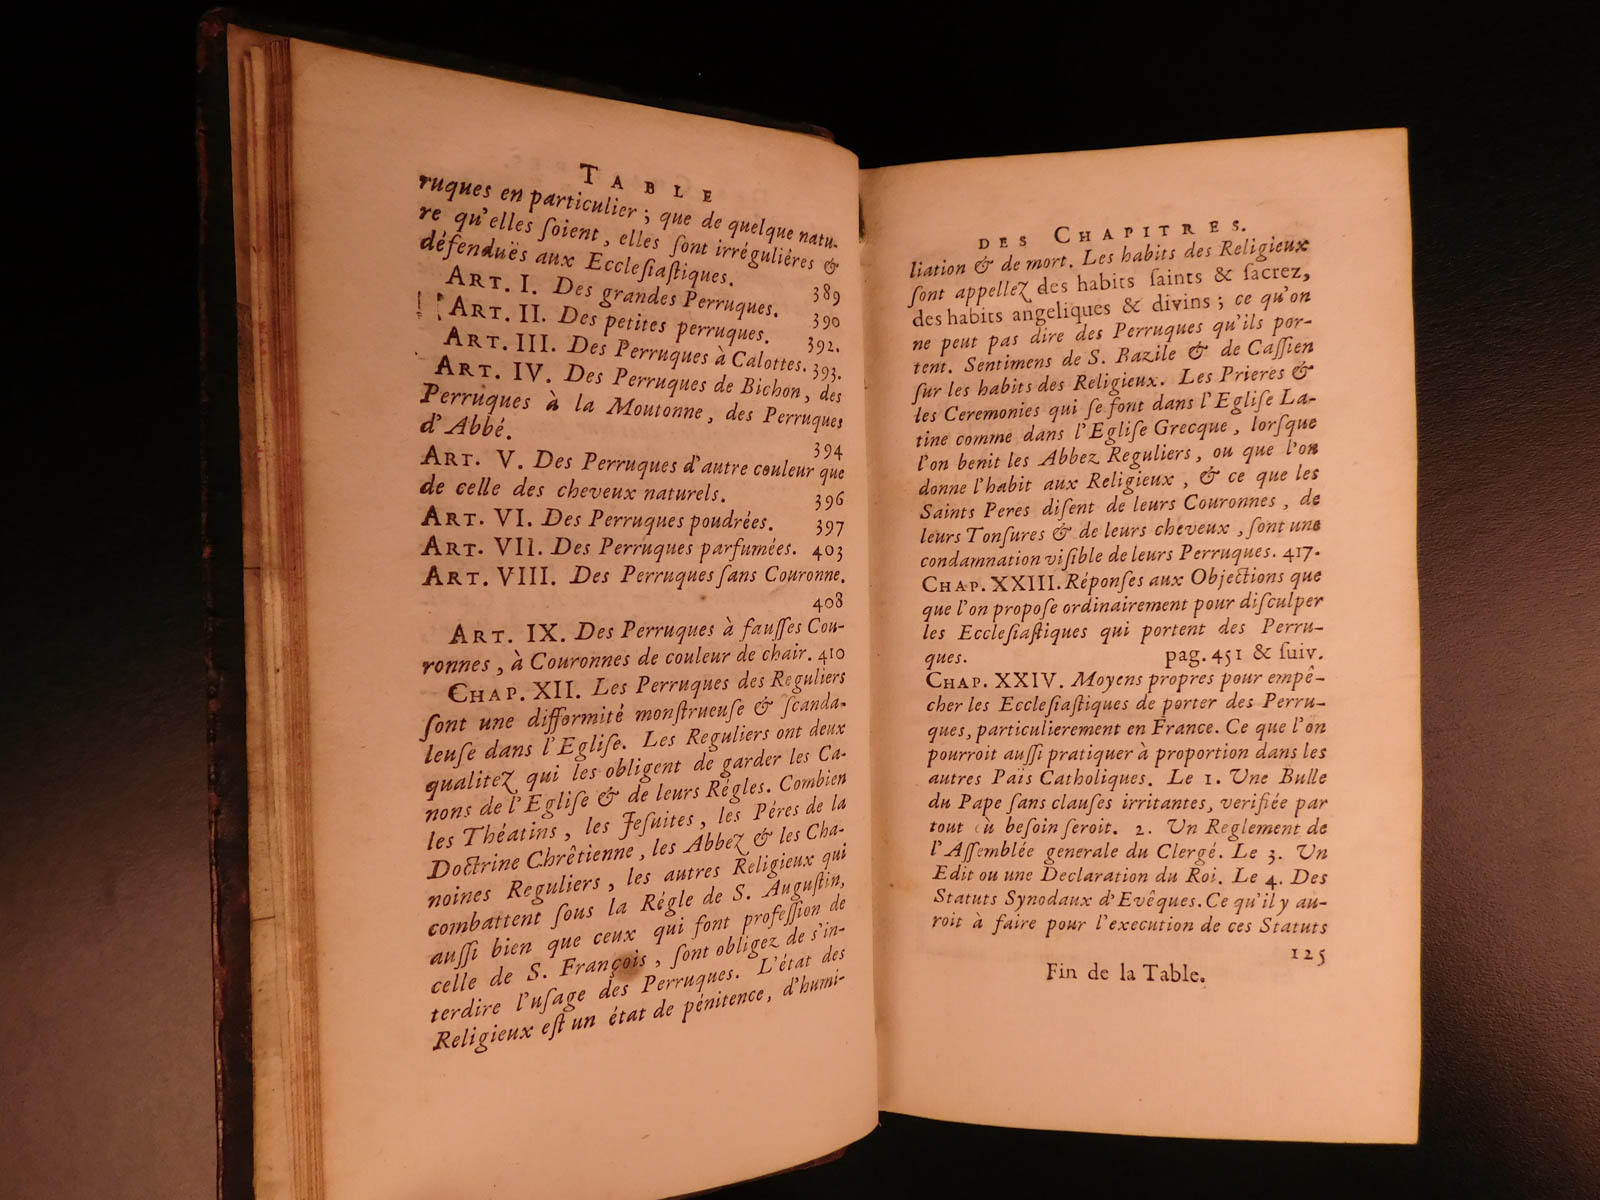 TABLE
ruques en particulier ; que de quelque natu-
re qu'elles ſoient, elles ſont irréguliéres &
défenduës aux Eccleſiaſtiques. 389
ART. I. Des grandes Perruques. 390
ART. II. Des petites perruques. 392.
ART. III. Des Perruques à Calottes. 393.
ART. IV. Des Perruques de Bichon, des
Perruques à la Moutonne, des Perruques
d'Abbé. 394
ART. V. Des Perruques d'autre couleur que
de celle des cheveux naturels. 396
ART. VI. Des Perruques poudrées. 397
ART. VII. Des Perruques parfumées. 403
ART. VIII. Des Perruques ſans Couronne.
408
ART. IX. Des Perruques à fauſſes Cou-
ronnes, à Couronnes de couleur de chair. 410
CHAP. XII. Les Perruques des Reguliers
ſont une difformité monſtrueuſe & ſcanda-
leuſe dans l'Egliſe. Les Reguliers ont deux
qualitez qui les obligent de garder les Ca-
nons de l'Egliſe & de leurs Régles. Combien
les Théatins, les Jeſuites, les Péres de la
Doctrine Chrêtienne, les Abbez & les Cha-
noines Reguliers, les autres Religieux qui
combattent ſous la Régle de S. Auguſtin,
auſſi bien que ceux qui font profeſſion de
celle de S. François, ſont obligez de s'in-
terdire l'uſage des Perruques. L'état des
Religieux eſt un état de pénitence, d'humi-
DES CHAPITRES.
liation & de mort. Les habits des Religieux
ſont appellez des habits ſaints & ſacrez,
des habits angeliques & divins ; ce qu'on
ne peut pas dire des Perruques qu'ils por-
tent. Sentimens de S. Bazile & de Caſſien
ſur les habits des Religieux. Les Prieres &
les Ceremonies qui ſe font dans l'Egliſe La-
tine comme dans l'Egliſe Grecque, lorſque
l'on benit les Abbez Reguliers, ou que l'on
donne l'habit aux Religieux, & ce que les
Saints Peres diſent de leurs Couronnes, de
leurs Tonſures & de leurs cheveux, ſont une
condamnation viſible de leurs Perruques. 417.
CHAP. XXIII. Réponſes aux Objections que
que l'on propoſe ordinairement pour diſculper
les Eccleſiaſtiques qui portent des Perru-
ques. pag. 451 & ſuiv.
CHAP. XXIV. Moyens propres pour empê-
cher les Eccleſiaſtiques de porter des Perru-
ques, particulierement en France. Ce que l'on
pourroit auſſi pratiquer à proportion dans les
autres Païs Catholiques. Le 1. Une Bulle
du Pape ſans clauſes irritantes, verifiée par
tout où beſoin ſeroit. 2. Un Reglement de
l'Aſſemblée generale du Clergé. Le 3. Un
Edit ou une Declaration du Roi. Le 4. Des
Statuts Synodaux d'Evêques. Ce qu'il y au-
roit à faire pour l'execution de ces Statuts
125
Fin de la Table.